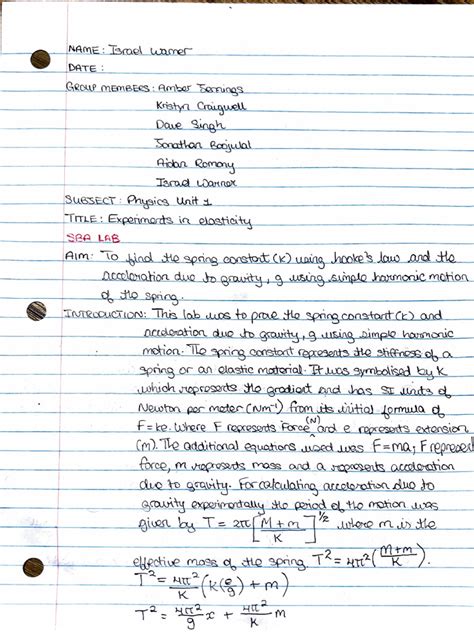 NAME: Israel Warner
DATE :
GROUP MEMBERS: Amber Jennings
Kristyn Craigwell
Dave Singh
Jonathan Boojulal
Aidan Romany
Israel Warner
SUBJECT: Physics Unit 1
TITLE: Experiments in elasticity
SBA LAB
AIM: To find the spring constant (k) using hooke's law and the
acceleration due to gravity, g using simple harmonic motion
of the spring.
INTRODUCTION: This lab was to prove the spring constant (k) and
acceleration due to gravity, g using simple harmonic
motion. The spring constant represents the stiffness of a
spring or an elastic material. It was symbolised by K
which represents the gradient and has SI units of
Newton per meter (Nm⁻¹) from its initial formula of
F=ke. Where F represents Force (N) and e represents extension
(m). The additional equations used was F=ma, F represent
force, m represents mass and a represents acceleration
due to gravity. For calculating acceleration due to
gravity experimentally the period of the motion was
given by T = 2π[M+m/K]^1/2 where m is the
effective mass of the spring. T² = 4π²(M+m/K).
T² = 4π²/K (k(e/g) + m)
T² = 4π²/g x + 4π²/K m